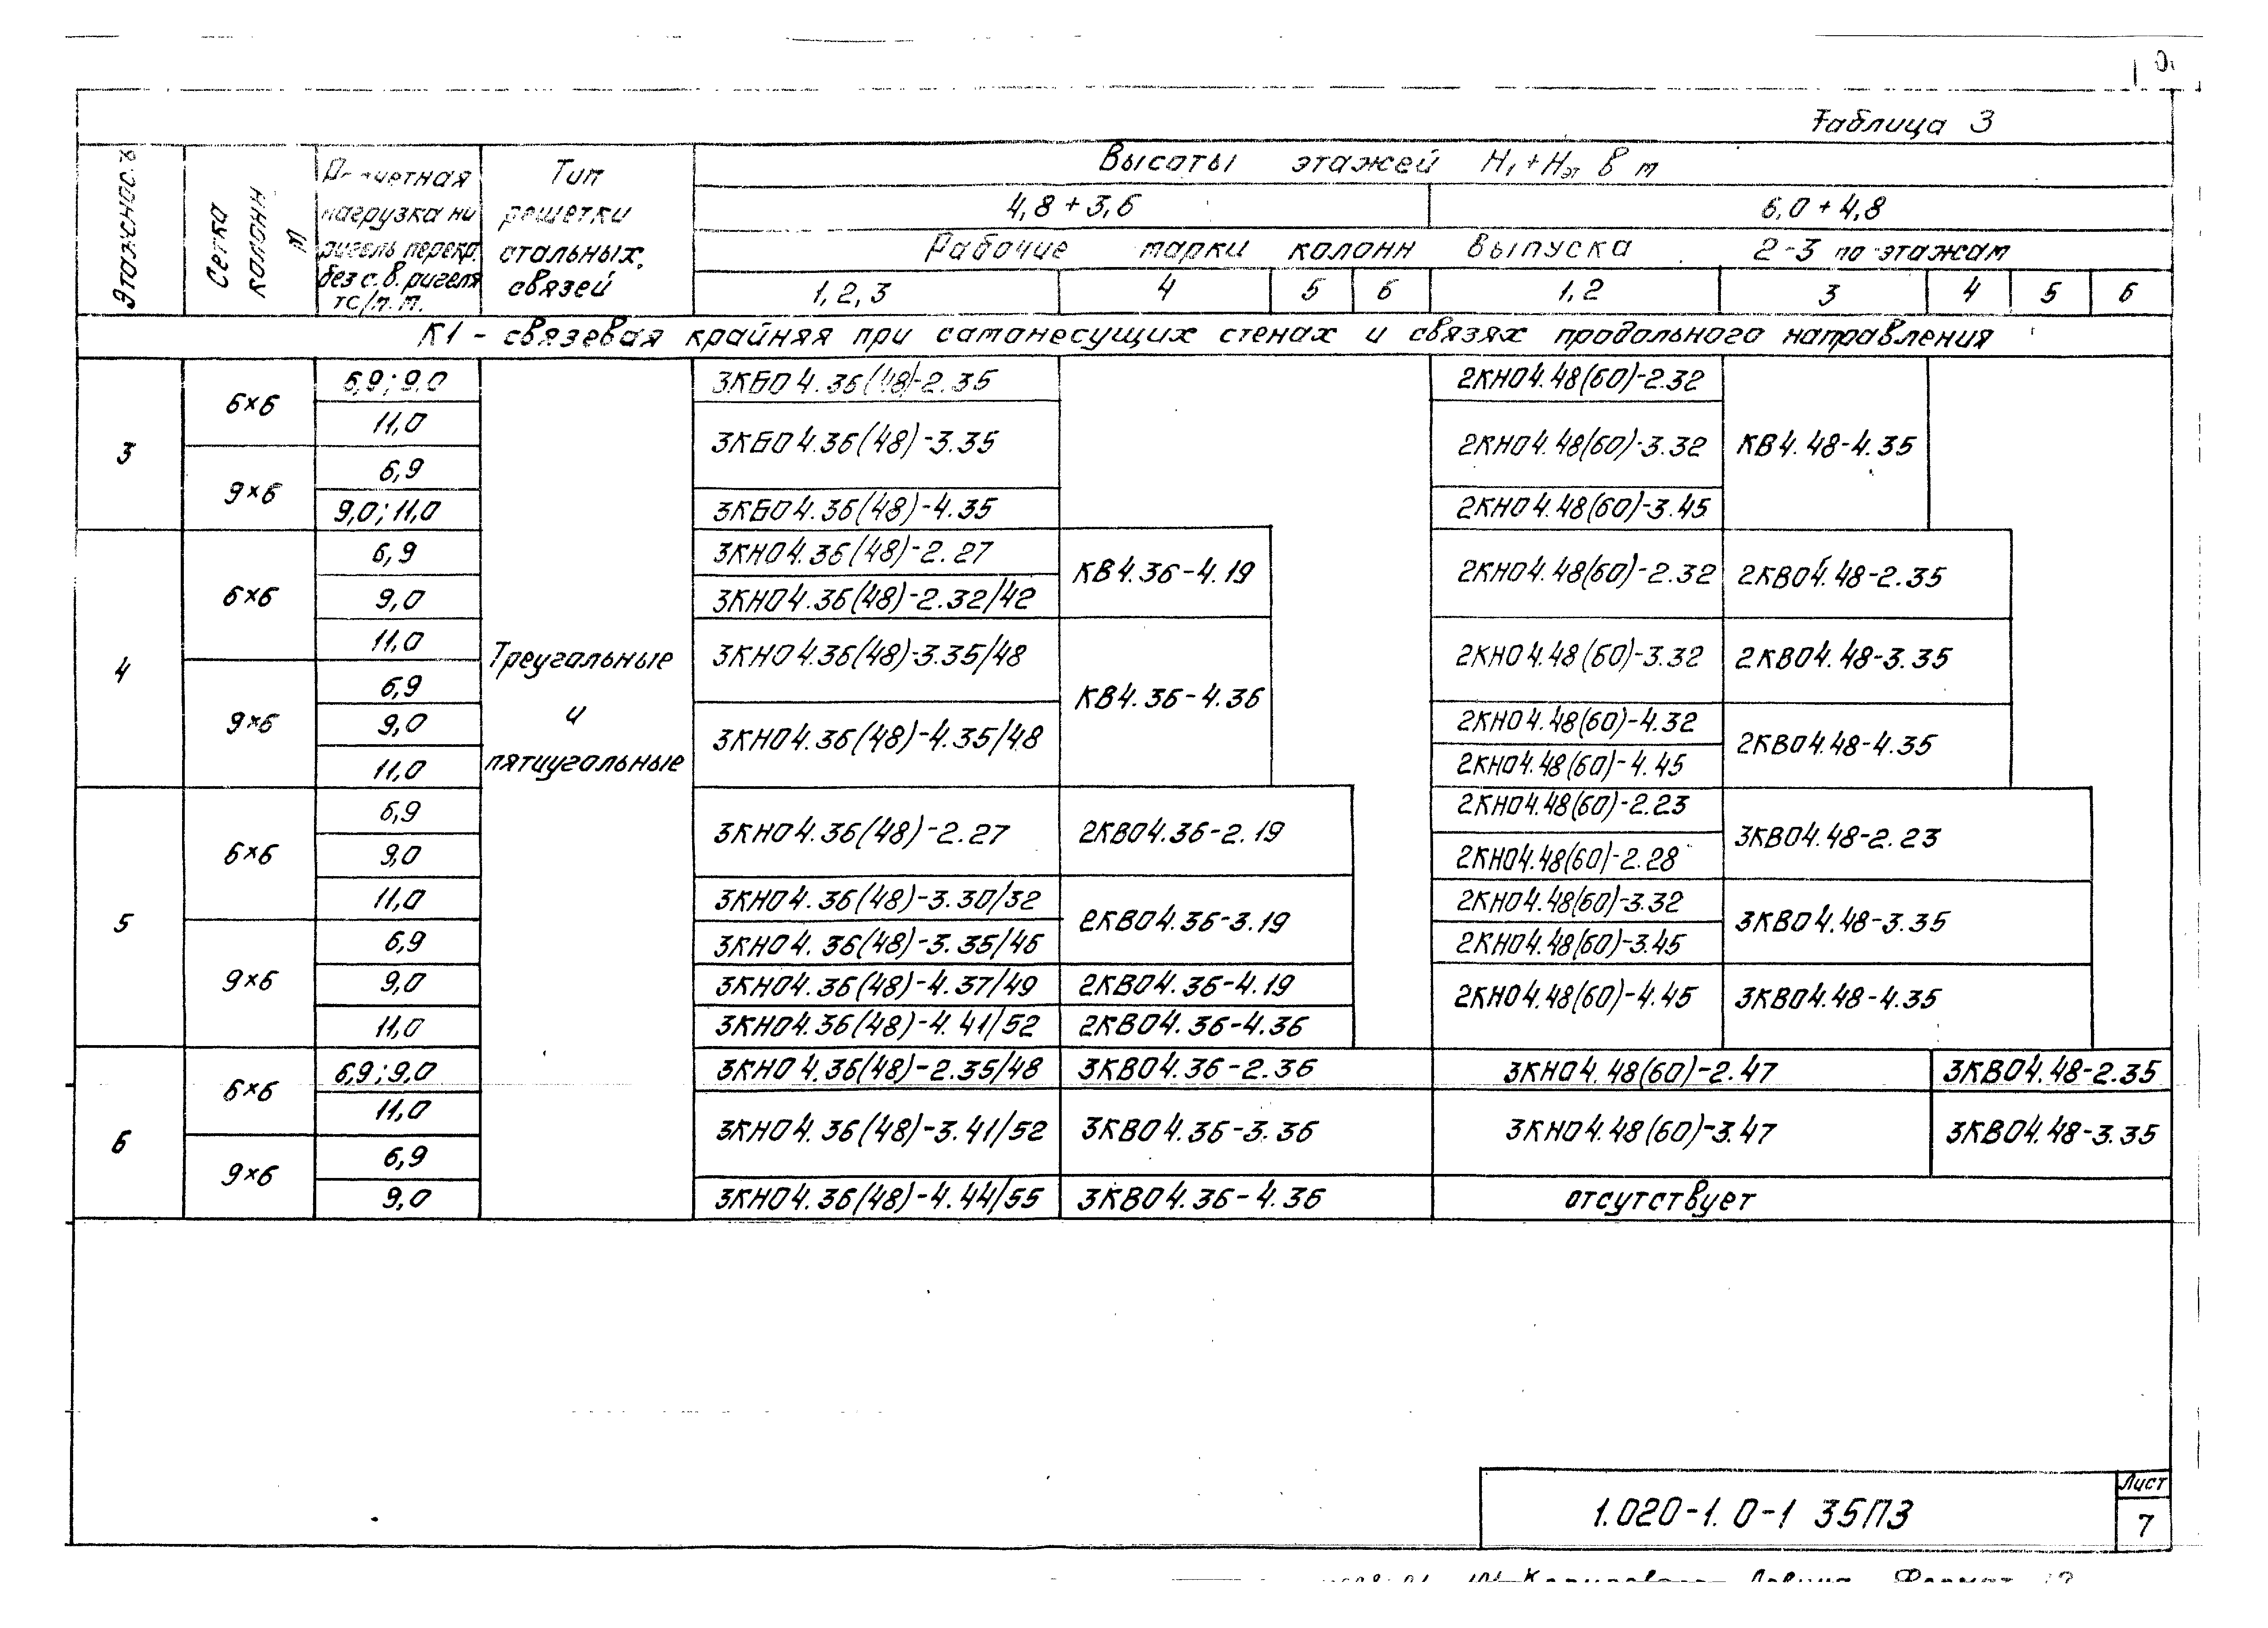 Таблица 3
Этажность
Сетка колонн м
Расчетная нагрузка на ригель перекр. без с.в. ригеля тс/п.м.
Тип решетки стальных связей
Высоты этажей H₁+Hэт в м
4,8 + 3,6 6,0 + 4,8
Рабочие марки колонн выпуска 2-3 по этажам
1, 2, 3 4 5 6 1, 2 3 4 5 6
К1 - связевая крайняя при самонесущих стенах и связях продольного направления
3
6×6
6,9; 9,0 3КБО4.36(48)-2.35 2КНО4.48(60)-2.32
11,0 3КБО4.36(48)-3.35 2КНО4.48(60)-3.32 КВ4.48-4.35
9×6
6,9
9,0; 11,0 3КБО4.36(48)-4.35 2КНО4.48(60)-3.45
4
6×6
6,9 3КНО4.36(48)-2.27 КВ4.36-4.19 2КНО4.48(60)-2.32 2КВО4.48-2.35
9,0 3КНО4.36(48)-2.32/42
11,0 3КНО4.36(48)-3.35/48 2КНО4.48(60)-3.32 2КВО4.48-3.35
Треугальные
и
пятиугальные
9×6
6,9 КВ4.36-4.36
9,0 3КНО4.36(48)-4.35/48 2КНО4.48(60)-4.32 2КВО4.48-4.35
11,0 2КНО4.48(60)-4.45
5
6×6
6,9 3КНО4.36(48)-2.27 2КВО4.36-2.19 2КНО4.48(60)-2.23 3КВО4.48-2.23
9,0 2КНО4.48(60)-2.28
11,0 3КНО4.36(48)-3.30/32 2КВО4.36-3.19 2КНО4.48(60)-3.32 3КВО4.48-3.35
9×6
6,9 3КНО4.36(48)-3.35/46 2КНО4.48(60)-3.45
9,0 3КНО4.36(48)-4.37/49 2КВО4.36-4.19 2КНО4.48(60)-4.45 3КВО4.48-4.35
11,0 3КНО4.36(48)-4.41/52 2КВО4.36-4.36
6
6×6
6,9; 9,0 3КНО4.36(48)-2.35/48 3КВО4.36-2.36 3КНО4.48(60)-2.47 3КВО4.48-2.35
11,0 3КНО4.36(48)-3.41/52 3КВО4.36-3.36 3КНО4.48(60)-3.47 3КВО4.48-3.35
9×6
6,9
9,0 3КНО4.36(48)-4.44/55 3КВО4.36-4.36 отсутствует
1.020-1. 0-1 35ПЗ
Лист
7